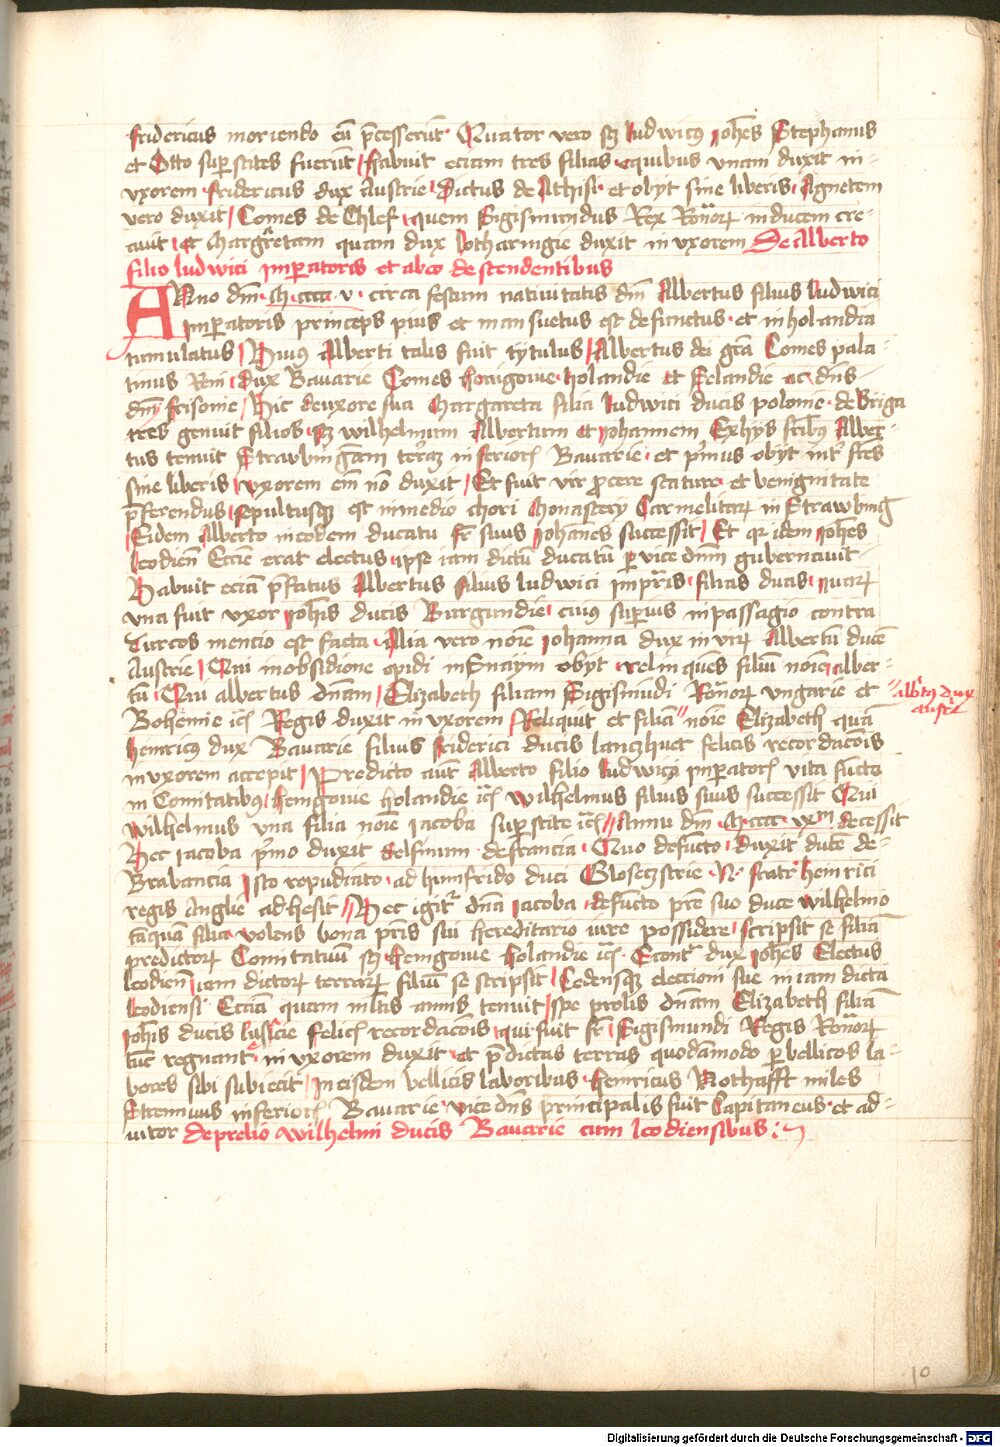 fridericus moriendo eū p̄cesserūt Quatuor vero sꝫ ludwicꝰ Joh̄es Stephanus
et Otto suꝑstites fuerūt Habuit eciam tres filias equibus vnam duxit in-
vxorem fridericus dux Austrie Dictus de Athisi et obyt sine liberis Agnetem
vero duxit Comes de Chlef quem Sigismundus Rex Romor̄ inducem cre-
auit et Margretam quam dux lotharingie duxit in vxorem De Alberto
filio ludwici Imꝑatoris et ab eo descendentibus
ANno dm̄ M cccc v circa festum natiuitatis dm̄ Albertus filius ludwici
Imꝑatoris princeps pius et mansuetus est defunctus et in holandia
tumulatus Huiꝰ Alberti talis fuit tytulus Albertus dei gr̄a Comes pala-
tinus Reni Dux Bauarie Comes Honigowie holandie et Selandie ac dn̄s
dn̄y frisonie Hic deuxore sua Margareta filia ludwici ducis polonie de Briga
tres genuit filios sꝫ wilhelmum Albertum et Johannem Ex hys trībꝰ Alber-
tus tenuit Strawbingam terraꝫ inferiorꝭ Bauarie et pͥmus obyt int̄ fr̄es
sine liberis vxorem em̄ nō duxit Et fuit vir procere stature et benignitate
p̄ferendus sepultusqꝫ est inmedio chori Monastery Carmelitarꝫ in Strawbing
Eidem Alberto in eodem ducatu fr̄ suus Johānes successit Et qꝛ idem Joh̄es
leodien̄ Eccīe erat electus ipse iam dictū ducatū ꝑ vice dnm̄ gubernauit
Habuit eciā p̄fatus Albertus filius ludwici Impr̄is filias duas quarꝫ
vna fuit vxor Joh̄is ducis Burgundie cuiꝰ suꝑius inpassagio contra
Turcos mencio est facta Alia vero noīe Johanna dux in virꝫ Albertū ducē
Austrie Qui inobsidione opidi in Snaym obyt relinquēs filiū noīe alber-
tū Qui albertus dn̄am Elizabeth filiam Sigismūdi Romorꝫ vngarie et
Bohemie ꝛcꝭ Regis duxit in vxorem Reliquit et filiā noīe Elizabeth quā
heinricꝰ dux Bauarie filius friderici ducis lanczhuet felicis recordacōis
in vxorem accepit Predicto aūt Alberto filio ludwici Imꝑatorꝭ vita fūcto
in Comitatibꝰ Henigowie holandie ꝛcꝭ wilhelmus filius suus successit Qui
wilhelmus vna filia noīe iacoba suꝑstite ꝛcꝭ Anno dm̄ M cccc xvii decessit
Hec iacoba pͥmo duxit delfinum de francia Quo defūcto duxit ducē de-
Brabancia Isto repudiato ad humfrido duci Glosecztrie N fratr̄ heinrici
regis Anglie adhesit Hec igitᷣ dn̄a iacoba defūcto pr̄e suo duce wilhelmo
tāquā filia volens bona pr̄is sui hereditario iure possidere scripsit se filiā
predictorꝫ Comitatuū sꝫ Henigowie holandie ꝛcꝭ Econtͣ dux Joh̄es Electus
leodien̄ iam dictorꝫ terrarꝫ filiū se scripsit Cedensqꝫ eleccioni sue in iam dicta
leodiensi Eccīa quam mltis annis tenuit spe prolis dn̄am Elizabeth filiā
Joh̄is ducis lusacie felicꝭ recordacōis qui fuit fr̄ Sigismundi Regis Romorꝫ
tūc regnantꝭ in vxorem duxit et p̄dictas terras quodāmodo ꝑ bellicos la-
bores sibi subiecit In eisdem bellicis laboribus Heinricus Nothafft miles
Strennuus inferiorꝭ Bauarie vice dn̄s principalis fuit Capitaneus et ad-
iutor De prelio wilhelmi ducis Bauarie cum leodiensibus
Alb̄tꝰ dux
austꝭ
10
Digitalisierung gefördert durch die Deutsche Forschungsgemeinschaft - DFG